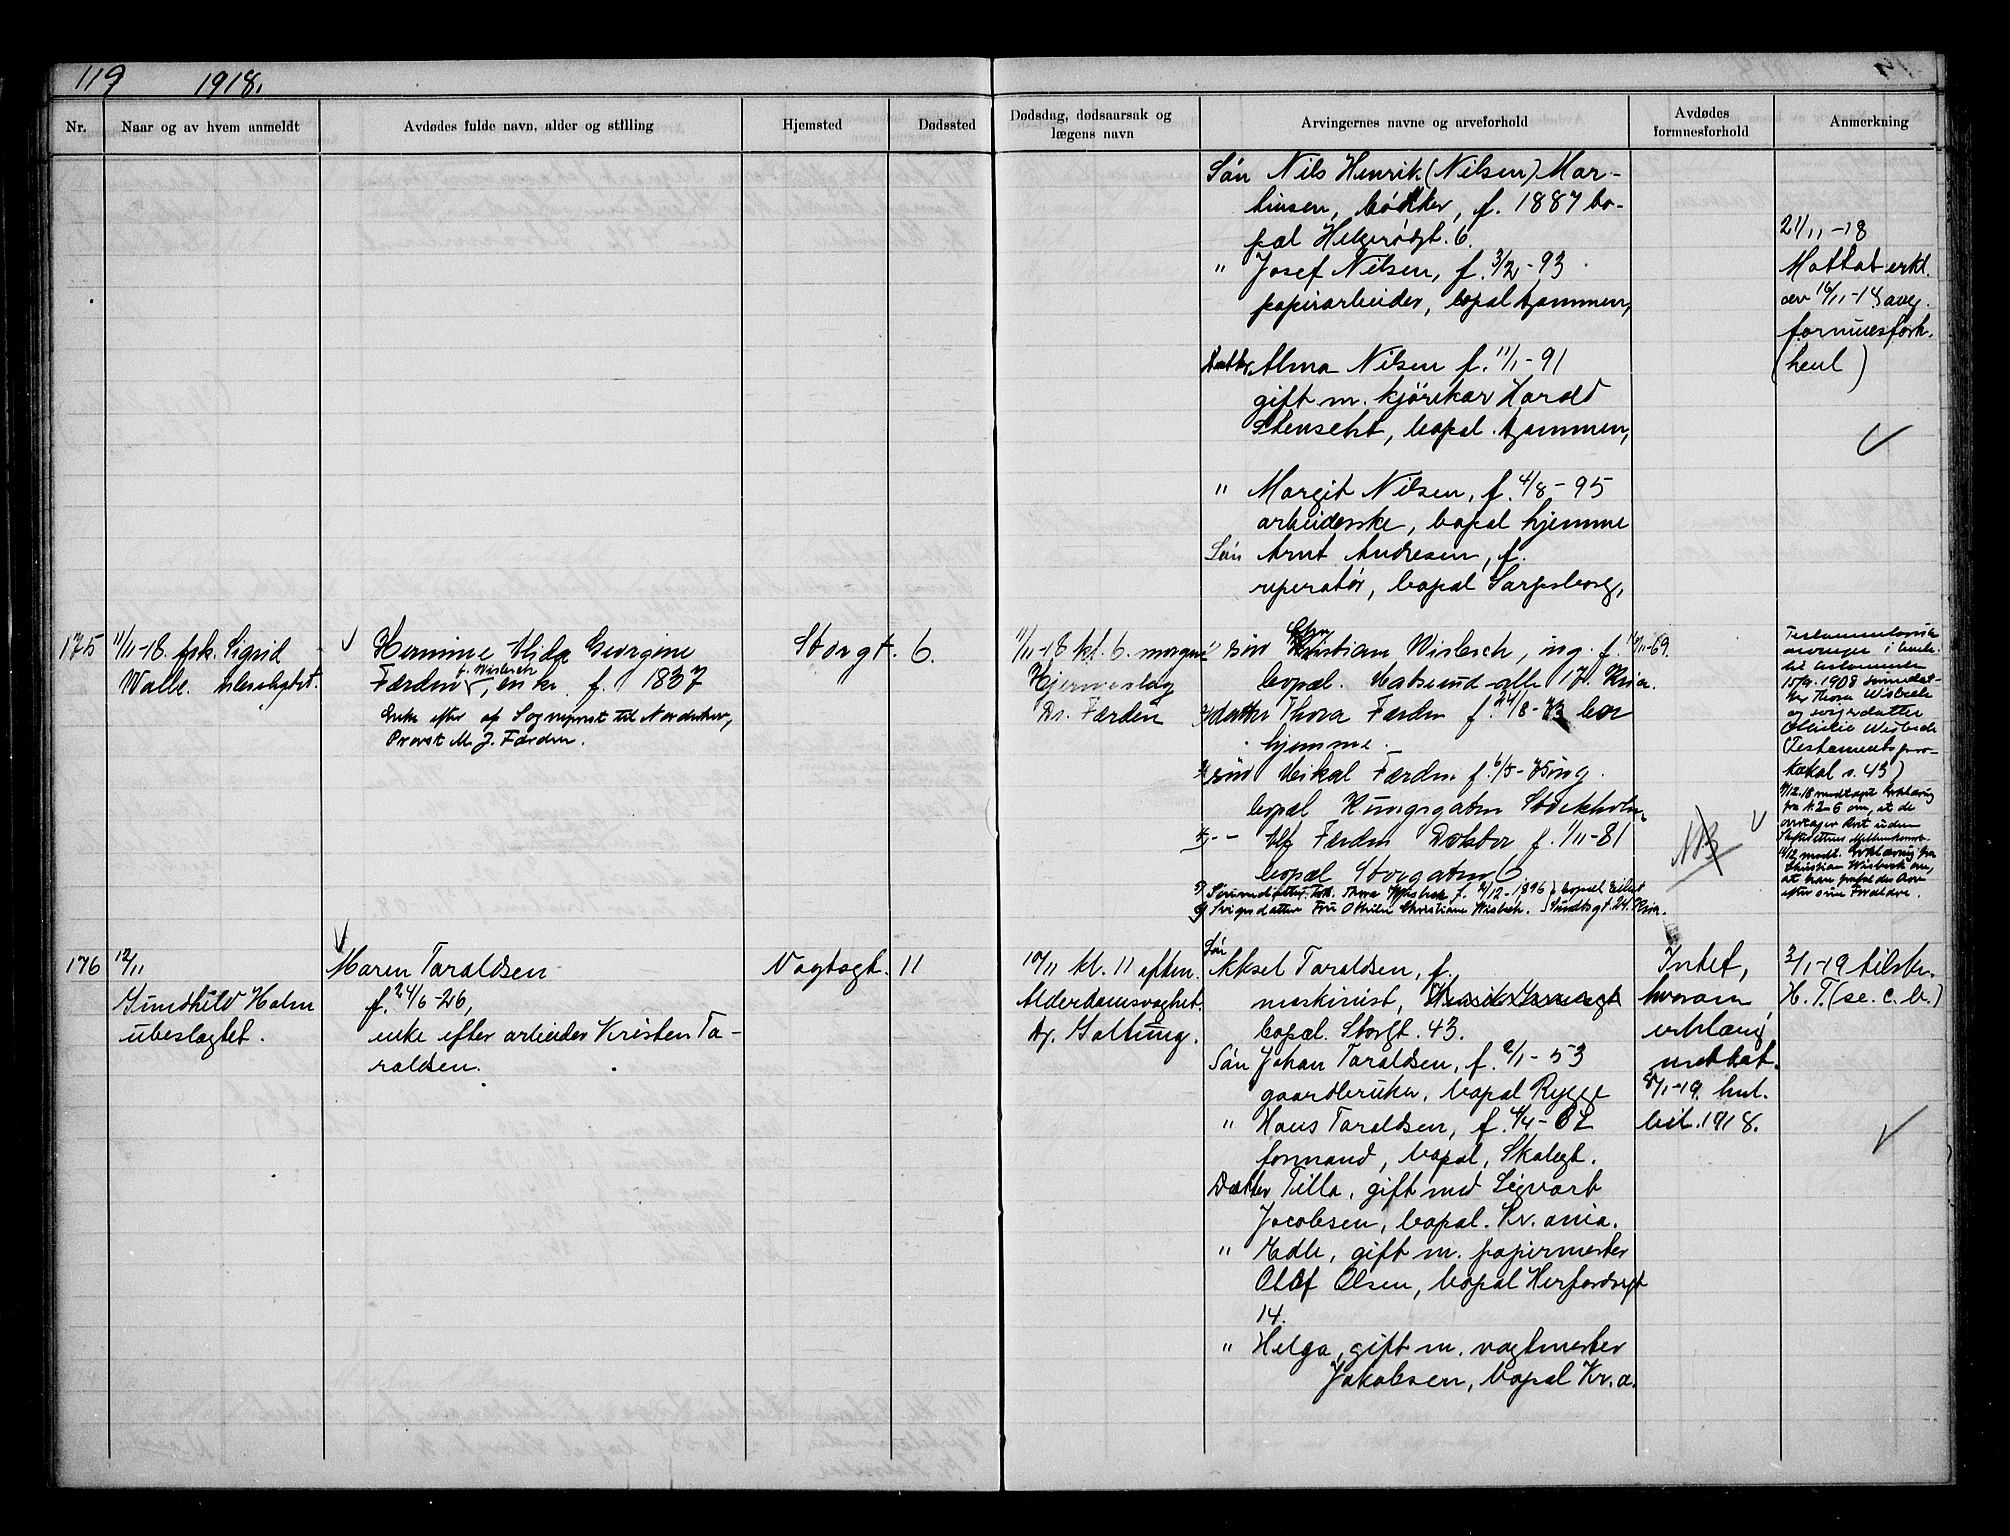 119 1918.
Nr.
Naar og av hvem anmeldt
Avdødes fulde navn, alder og stilling
Hjemsted
Dødssted
Dødsdag, dødsaarsak og
lægens navn
Arvingernes navne og arveforhold
Avdødes
formuesforhold
Anmerkning
Søn Nils Henrik (Nilsen) Mar-
tinsen, bødker, f. 1887 bo-
pæl Helgerødgt. 6.
" Josef Nilsen, f. 3/2-93
papirarbeider, bopæl hjemme,
Datter Alma Nilsen f. 11/1-91
gift m. kjørekar Harald
Stenseth, bopæl hjemme,
" Margit Nilsen, f. 4/8-95
arbeiderske, bopæl hjemme
Søn Arnt Andresen, f.
reperatør, bopæl Sarpsborg,
21/11-18
Mottat erkl.
av 16/11-18 ang.
formuesforh.
(henl)
175
11/11-18. frk. Sigrid
Walle.
Hermine Alida Georgine
f. Wisbech
Færden, enke f. 1837
Enke efter af Sogneprest til Norderhov,
Provst M. J. Færden.
Storgt. 6.
11/11-18 kl. 6. morgen
Hjerneslag
Dr. Færden
1/ søn Chr Kristian Wisbech, ing. f. 16/11-69.
bopæl. alle 17. Kria.
2/ datter Thora Færden f. 24/8-73 bor
hjemme.
3/ søn Mikal Færden f. 6/5-75 ing.
bopæl Kungsgaten Stockholm
4/ - - Ulf Færden Doktor f. 1/11-81
bopæl Storgaten 6
5/ Sønnedatter Frk. Thora Wisbech f. 2/12-1896 } bopæl Eilert
6/ Svigerdatter Fru Othilie Christiane Wisbech. } Sundtsgt. 24. Kria.
NB
Testamentariske
arvinger i henh.
til testamente
15/9. 1908 sønnedat-
ter Thora Wisbech
og svigerdatter
Othilie Wisbech
(Testamentspro-
tokol s. 43)
9/12.18 modtaget Erklæring
fra N. 2-6 om, at de
overtager Arv uden
Skifterettens Mellemkomst
14/12 modt. Erklæring fra
Christian Wisbech om,
at han frafalder Arv
efter sine Forældre.
176
12/11
Gundhild Holm
ubeslegtet.
Maren Taraldsen
f. 24/6-26,
enke efter arbeider Kristen Ta-
raldsen.
Vogtsgt. 11
10/11 kl. 11 aften.
Alderdomssvaghet.
Dr. Galtung.
Søn
Aksel Taraldsen, f.
maskinist,
bopæl. Storgt. 43.
Søn Johan Taraldsen, f. 2/1-53
gaardbruker, bopæl Rygge
" Hans Taraldsen, f. 4/4-62
formand, bopæl, Skolegt.
Datter Tilla, gift med Sigvart
Jacobsen, bopæl. Kr.ania.
" Edle, gift m. papirmester
Olaf Olsen, bopæl Herfordsgt
14.
" Helga, gift m. vagtmester
Jakobsen, bopæl Kr.a.
Intet,
hvorom
erklæring
mottat.
8/1-19. henl.
bil. 1918.
3/1-19 tilskr.
H. T. (se. c. b.)